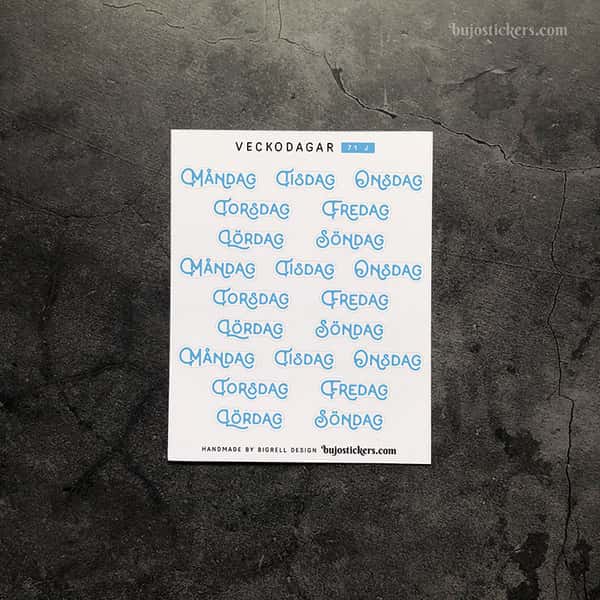 bujostickers.com
VECKODAGAR 71 J
MÅNDAG TISDAG ONSDAG
TORSDAG FREDAG
LÖRDAG SÖNDAG
MÅNDAG TISDAG ONSDAG
TORSDAG FREDAG
LÖRDAG SÖNDAG
MÅNDAG TISDAG ONSDAG
TORSDAG FREDAG
LÖRDAG SÖNDAG
HANDMADE BY BIGRELL DESIGN bujostickers.com